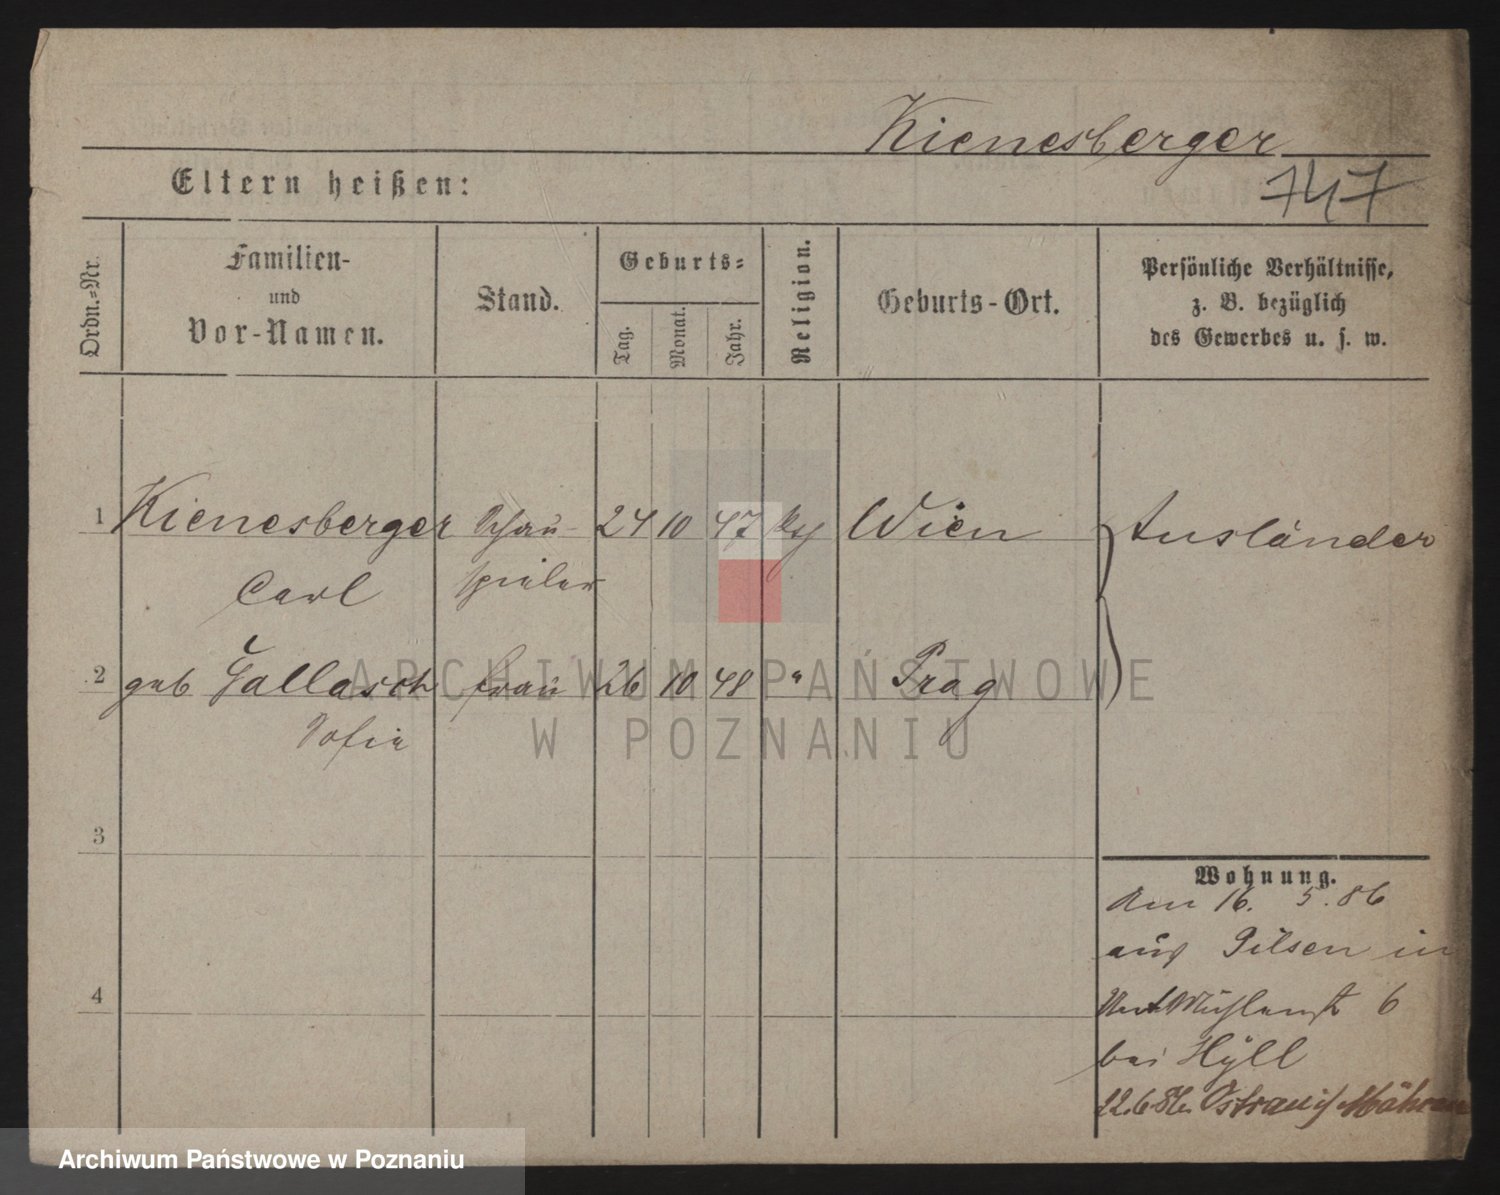 Kienesberger
Eltern heißen:
747
Ordn.-Nr.
Familien-
und
Vor-Namen.
Stand.
Geburts-
Tag.
Monat.
Jahr.
Religion.
Geburts-Ort.
Persönliche Verhältnisse,
z. B. bezüglich
des Gewerbes u. s. w.
1 Kienesberger Schau- 24 10 47 Wien Ausländer
Carl spieler
2 geb Gallasch Frau 26 10 48 " Prag
Sofie
ARCHIWUM PAŃSTWOWE
W POZNANIU
3
4
Wohnung.
Am 16. 5. 86
aus Pilsen in
Unt Mühlenst 6
bei Hÿll
12.6.86 Ostrau i/ Mähren
Archiwum Państwowe w Poznaniu